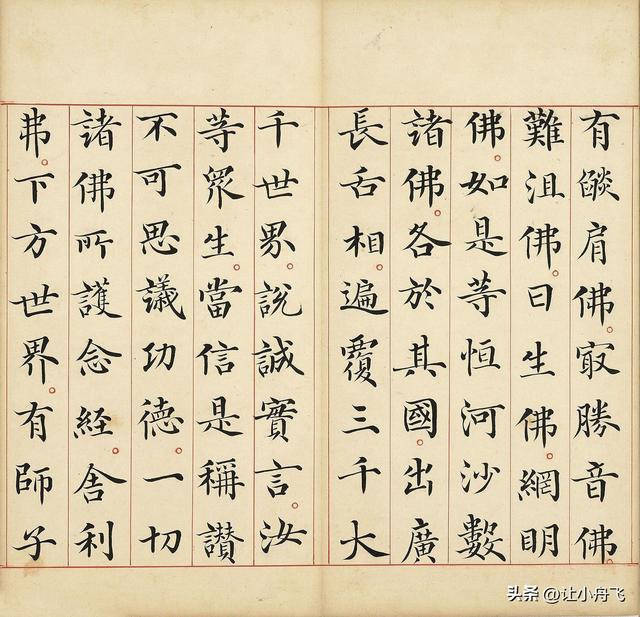 有燄肩佛。㝡勝音佛。
難沮佛。日生佛。網明
佛。如是等恒河沙數
諸佛。各於其國。出廣
長舌相。遍覆三千大
千世界。說誠實言。汝
等眾生。當信是稱讚
不可思議功德。一切
諸佛所護念経。舍利
弗。下方世界。有師子
头条 @让小舟飞